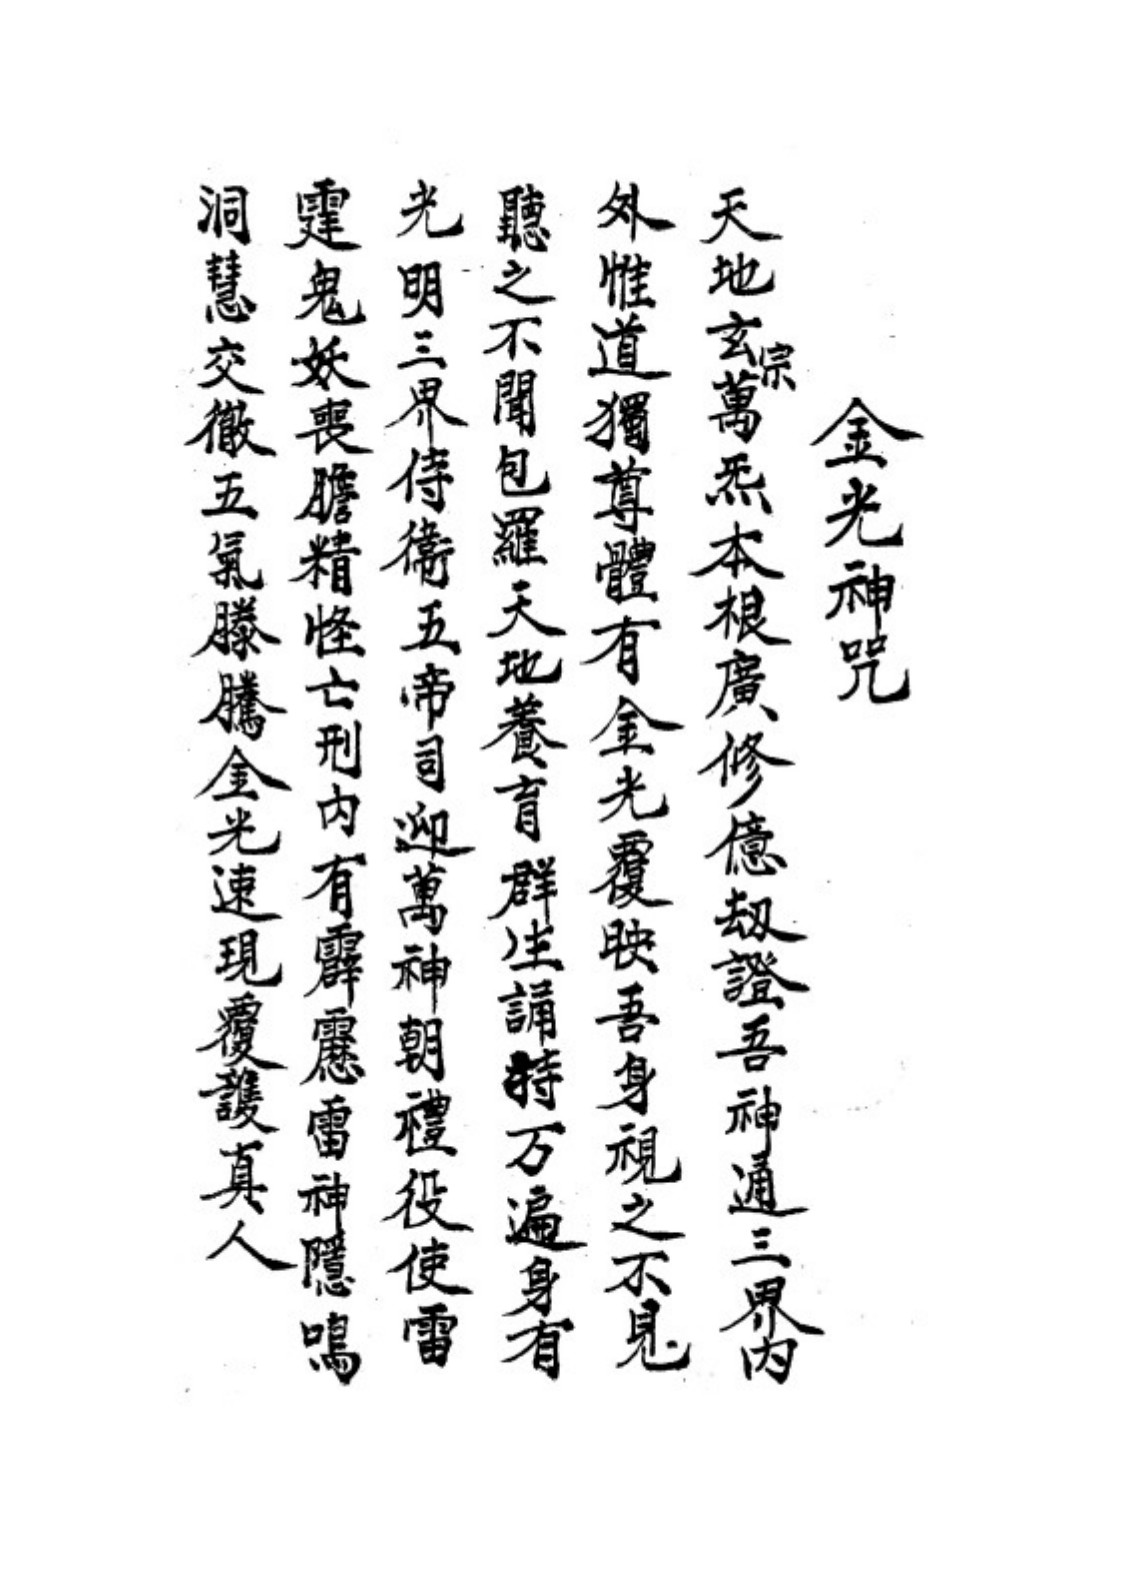 金光神咒
天地玄宗萬炁本根廣修億劫證吾神通三界內
外惟道獨尊體有金光覆映吾身視之不見
聽之不聞包羅天地養育群生誦持万遍身有
光明三界侍衛五帝司迎萬神朝禮役使雷
霆鬼妖喪膽精怪亡刑内有霹靂雷神隱鳴
洞慧交徹五氣滕騰金光速現覆護真人